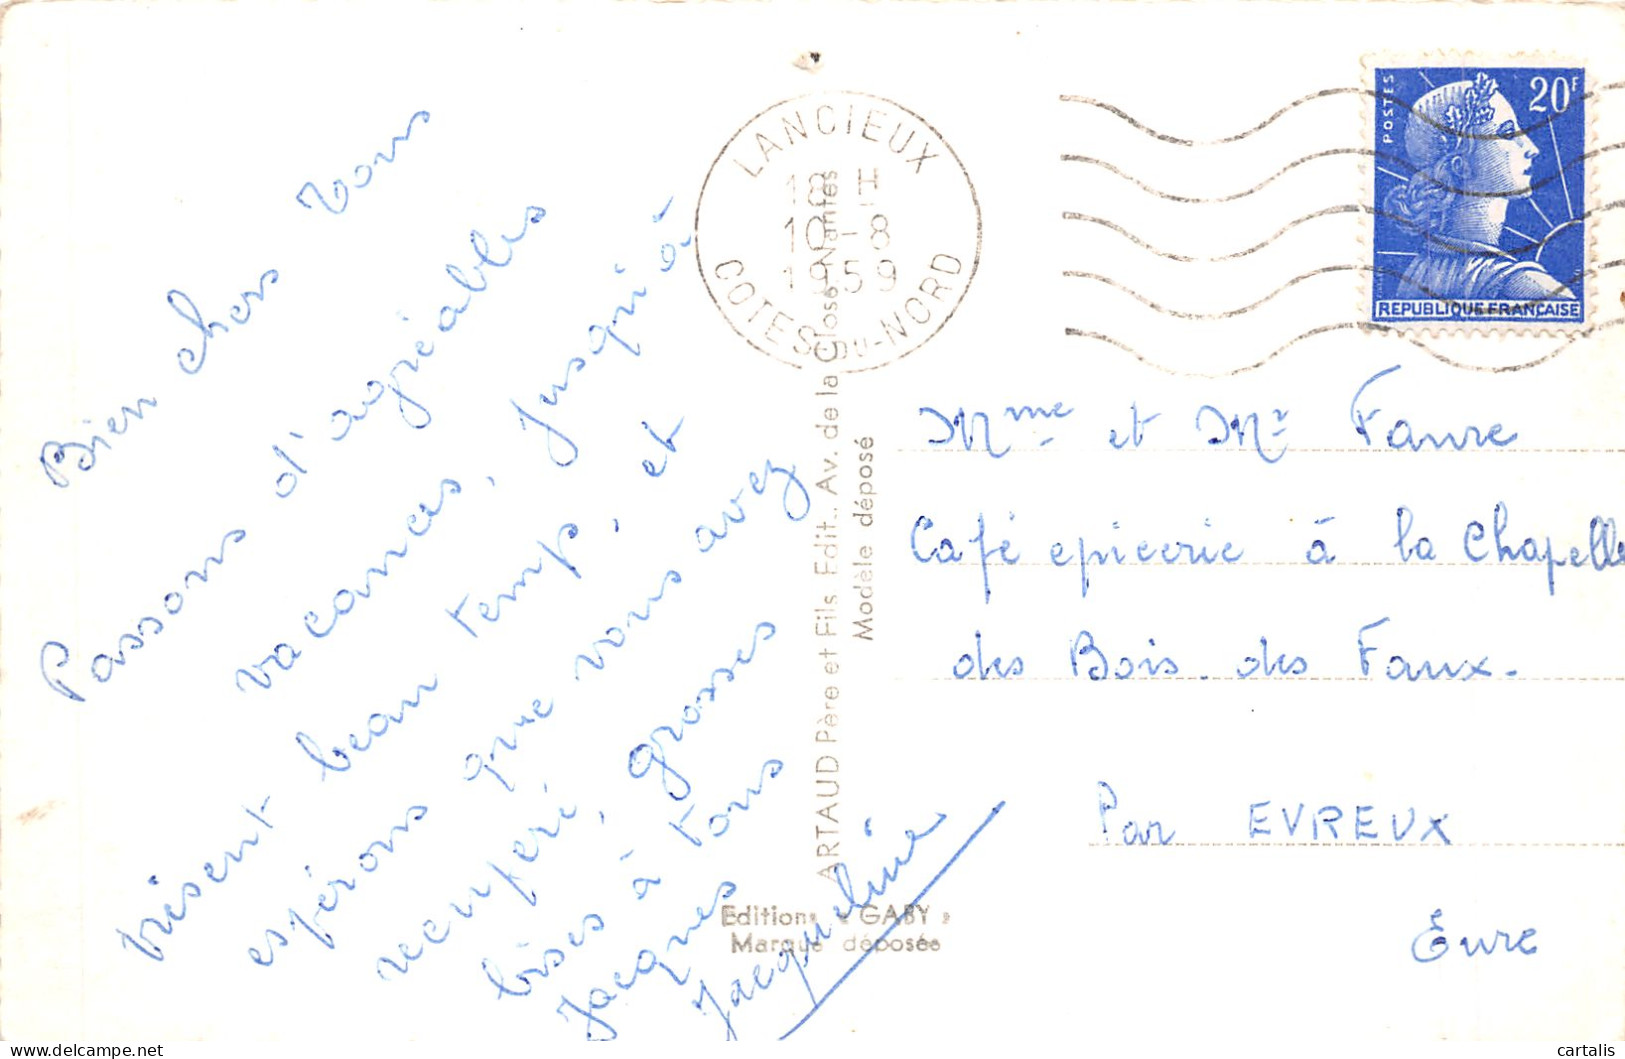 Bien chers vous
Passons d'agréables
vacances, jusqu'à
présent beau temps, et
espérons que vous avez
récupéré, grosses
bises à tous
Jacques
Jacqueline
LANCIEUX
18 H
10 - 8
1959
COTES-DU-NORD
POSTES
20F
REPUBLIQUE FRANÇAISE
ARTAUD Père et Fils Edit., Av. de la Close Nantes
Modèle déposé
Editions « GABY »
Marque déposée
Mme et Mr Faure
Café epicerie à la Chapelle
des Bois des Faux.
Par EVREUX
Eure
cartalis